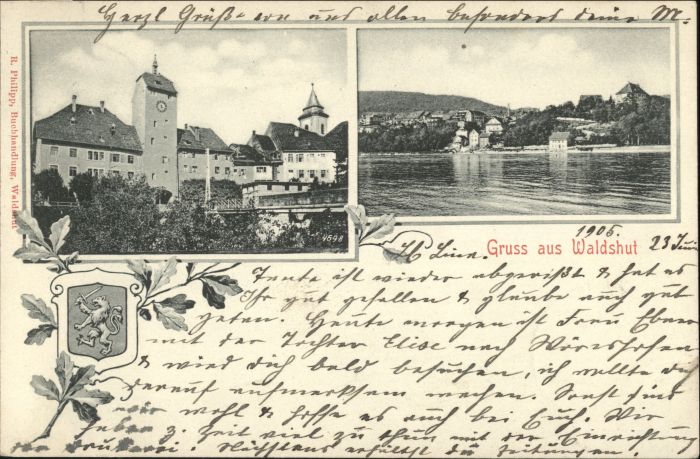 Herzl Grüße von uns allen besonders deine M.
R. Philipp, Buchhandlung, Waldshut
4698
1906.
Gruss aus Waldshut 23 Juni
Lb Lina.
Tante ist wieder abgereist & hat es
Ihr gut gefallen & glaube auch gut
getan. Heute morgen ist Frau Ebner
mit der Tochter Elise nach Wörishofen
& wird dich bald besuchen, ich wollte dich
darauf aufmerksam machen. Sonst sind
wir wohl & hoffe es auch bei Euch. Wir
haben z. Zeit viel zu thun mit der Einrichtung
der Druckerei. Nächstens erhältst du Zeitungen.